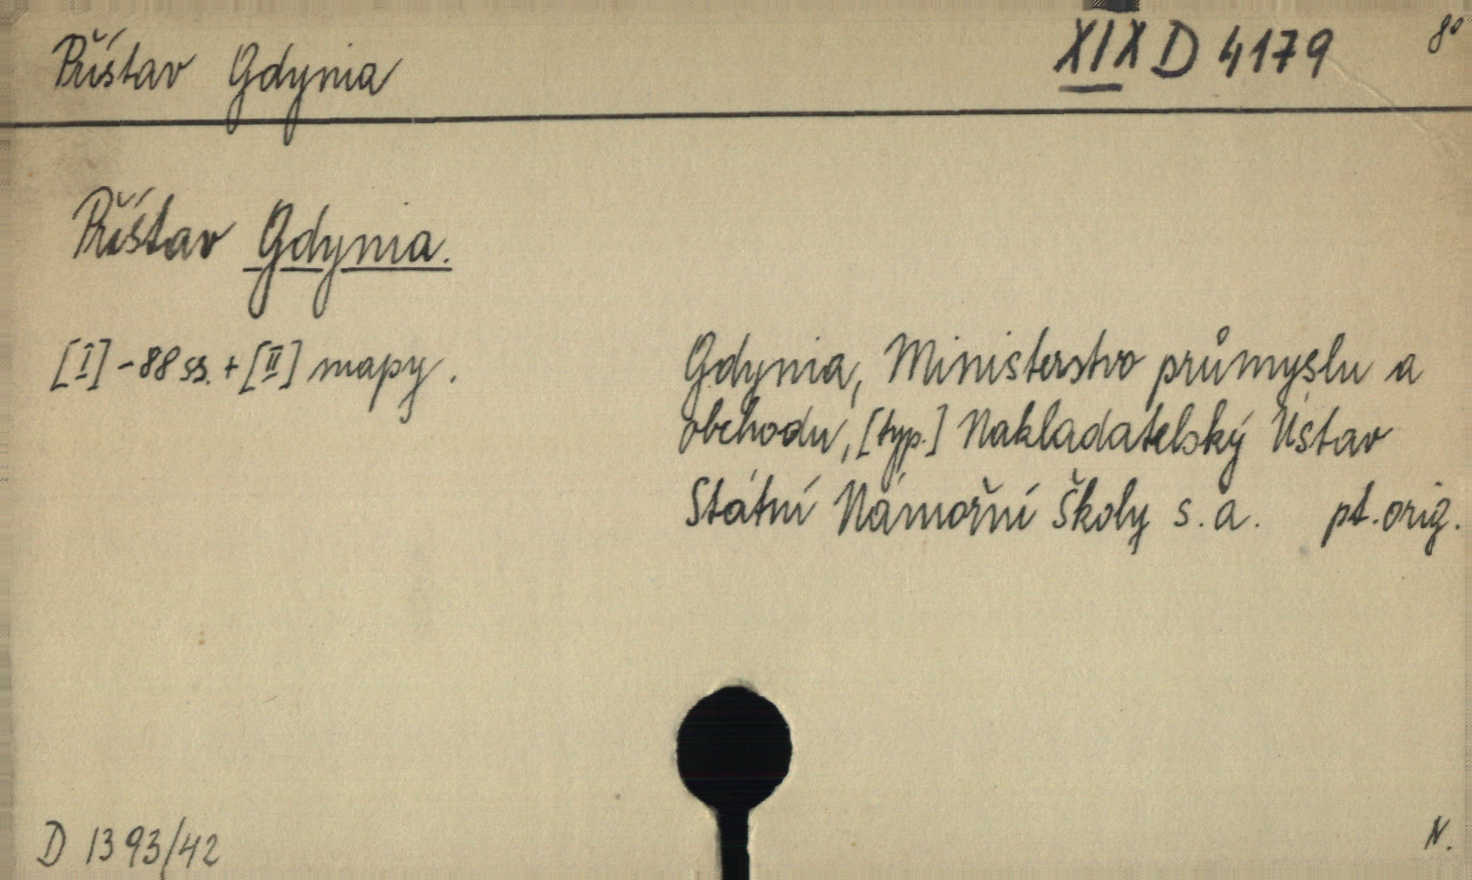 Přístav Gdynia XIX D 4179 8°
Přístav Gdynia.
[I]-88 ss. + [II] mapy.
Gdynia, Ministerstvo průmyslu a
obchodu, [typ.] Nakladatelský Ústav
Státní Námořní Školy s.a. pt. orig.
D 1393/42 N.